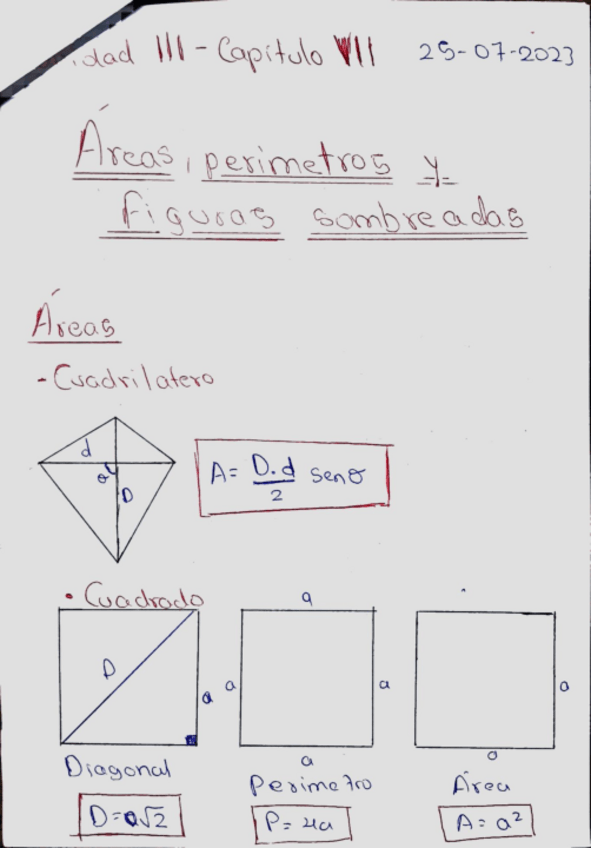 idad III - Capítulo VII 25-07-2023
Áreas, perimetros y
figuras sombreadas
Áreas
- Cuadrilatero
d
θ
D
A = D.d/2 senθ
• Cuadrado
a
D
a
a
a
a
a
a
Diagonal
Perimetro
Área
D = a√2
P = 4a
A = a²